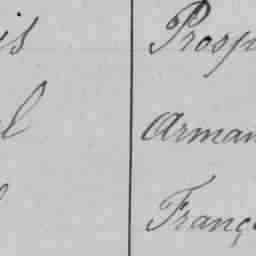 is Prosp
l Arman
Franç